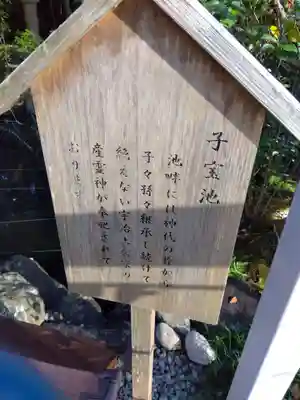 子宝池
池畔には神代の昔から
子々孫々継承し続けて
絶えない宇治土公家より
産霊神が奉祀されて
おります